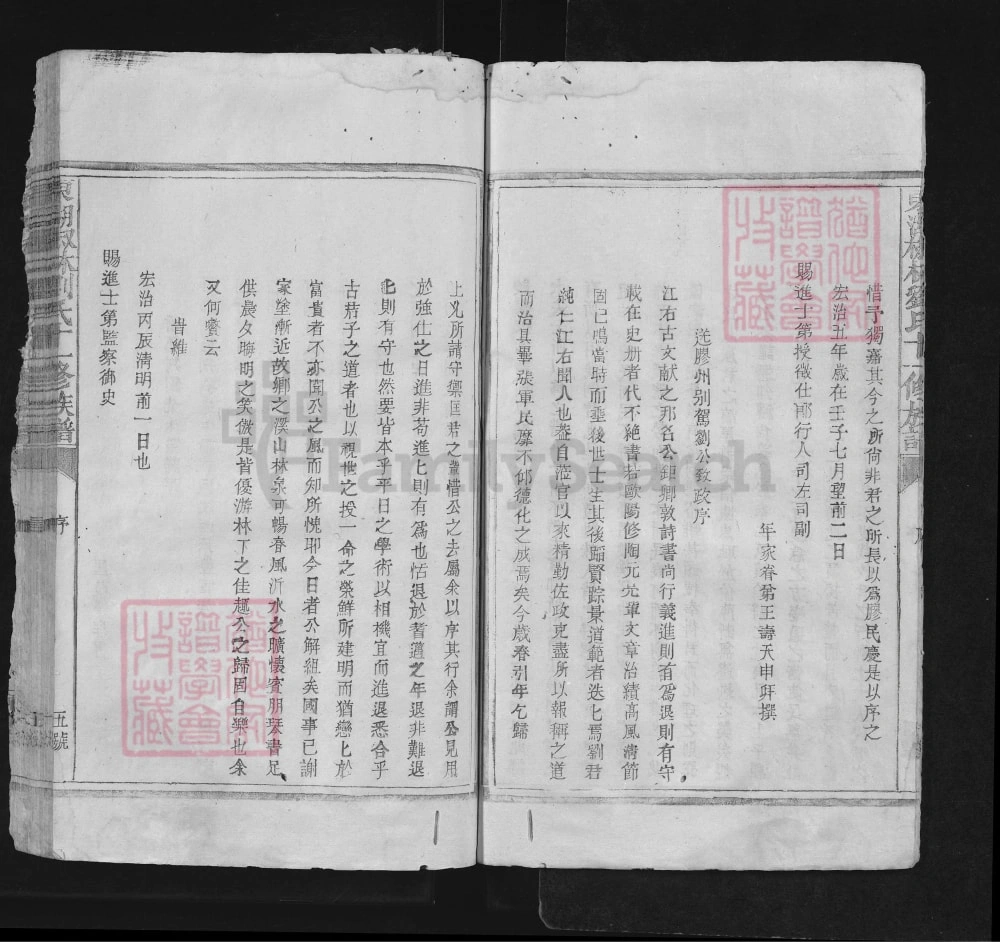 惜予獨嘉其今之所尚非君之所長以爲膠民慶是以序之
宏治五年歲在壬子七月望前二日
賜進士第授徵仕郎行人司左司副
年家眷第王壽天申拜撰
送膠州別駕劉公致政序
江右古文献之邦名公鉅卿敦詩書尚行義進則有爲退則有守
載在史册者代不絶書若歐陽修陶元亮軰文章治績高風清節
固已鳴當時而垂後世士生其後踮賢踪景道範者迭匕焉劉君
純仁江右聞人也葢自蒞官以來精勤佐政吏盡所以報稱之道
而治具畢張軍民靡不仰德化之成焉矣今歲春引年乞歸
上义所請守禦匡君之 惜公之去屬余以序其行余謂公見用
於強仕之日進非苟進匕則有爲也恬退於耆邁之年退非難退
匕則有守也然要皆本乎平日之學術以相機宜而進退悉合乎
古莙子之道者也以視世之投一命之榮鮮所建明而猶戀匕於
富貴者不亦聞公之風而知所愧耶今日者公解組矣國事已謝
家塾漸近故鄉之溪山林泉可暢春風沂水之曠懷賓朋琹書足
供晨夕晦明之笑傲是皆優游林下之佳趣公之歸固自樂也余
又何贅云
旹維
宏治丙辰清明前一日也
賜進士第監察御史
東湖 林劉氏十一修族譜
序
五號
譜學會
收藏
FamilySearch